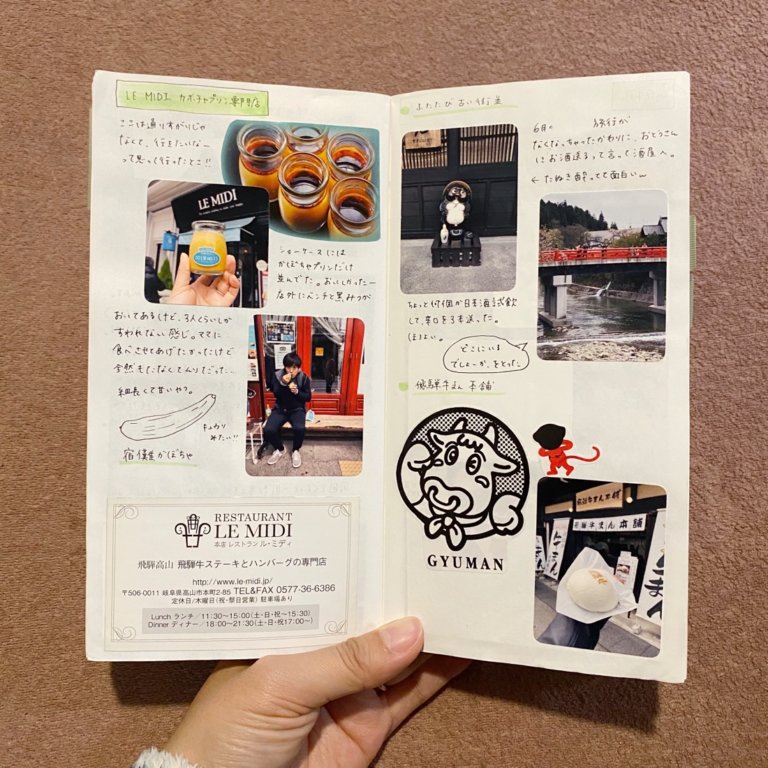 LE MIDI カボチャプリン専門店
ここは通りすがりじゃ
なくて、行きたいなー
って思って行ったとこ!!
LE MIDI
ショーケースには
かぼちゃプリンだけ
並んでた。おいしかったー
店外にベンチと黒みつが
おいてあるけど、3人くらいしか
すわれない感じ。ママに
食べさせてあげたかったけど
全然もたなくてムリだった…
細長くて甘いや?。
きゅうり
みたい!!
宿儺かぼちゃ
RESTAURANT
LE MIDI
本店 レストラン ル・ミディ
飛騨高山 飛騨牛ステーキとハンバーグの専門店
http://www.le-midi.jp/
〒506-0011 岐阜県高山市本町2-85 TEL&FAX 0577-36-6386
定休日/木曜日(祝・祭日営業) 駐車場あり
Lunch ランチ/11:30~15:00(土・日・祝~15:30)
Dinner ディナー/18:00~21:30(土・日・祝17:00~)
ふたたび古い街並
6月の 旅行が
なくなっちゃったかわりに、おとうさん
にお酒送るって言って酒屋へ。
← たぬき酔ってて面白い~
ちょっと何個か日本酒試飲
して、辛口を3本送った。
ほろよい。
どこにいる
でしょーか、をとった。
飛騨牛まん本舗
GYUMAN
飛騨牛まん本舗